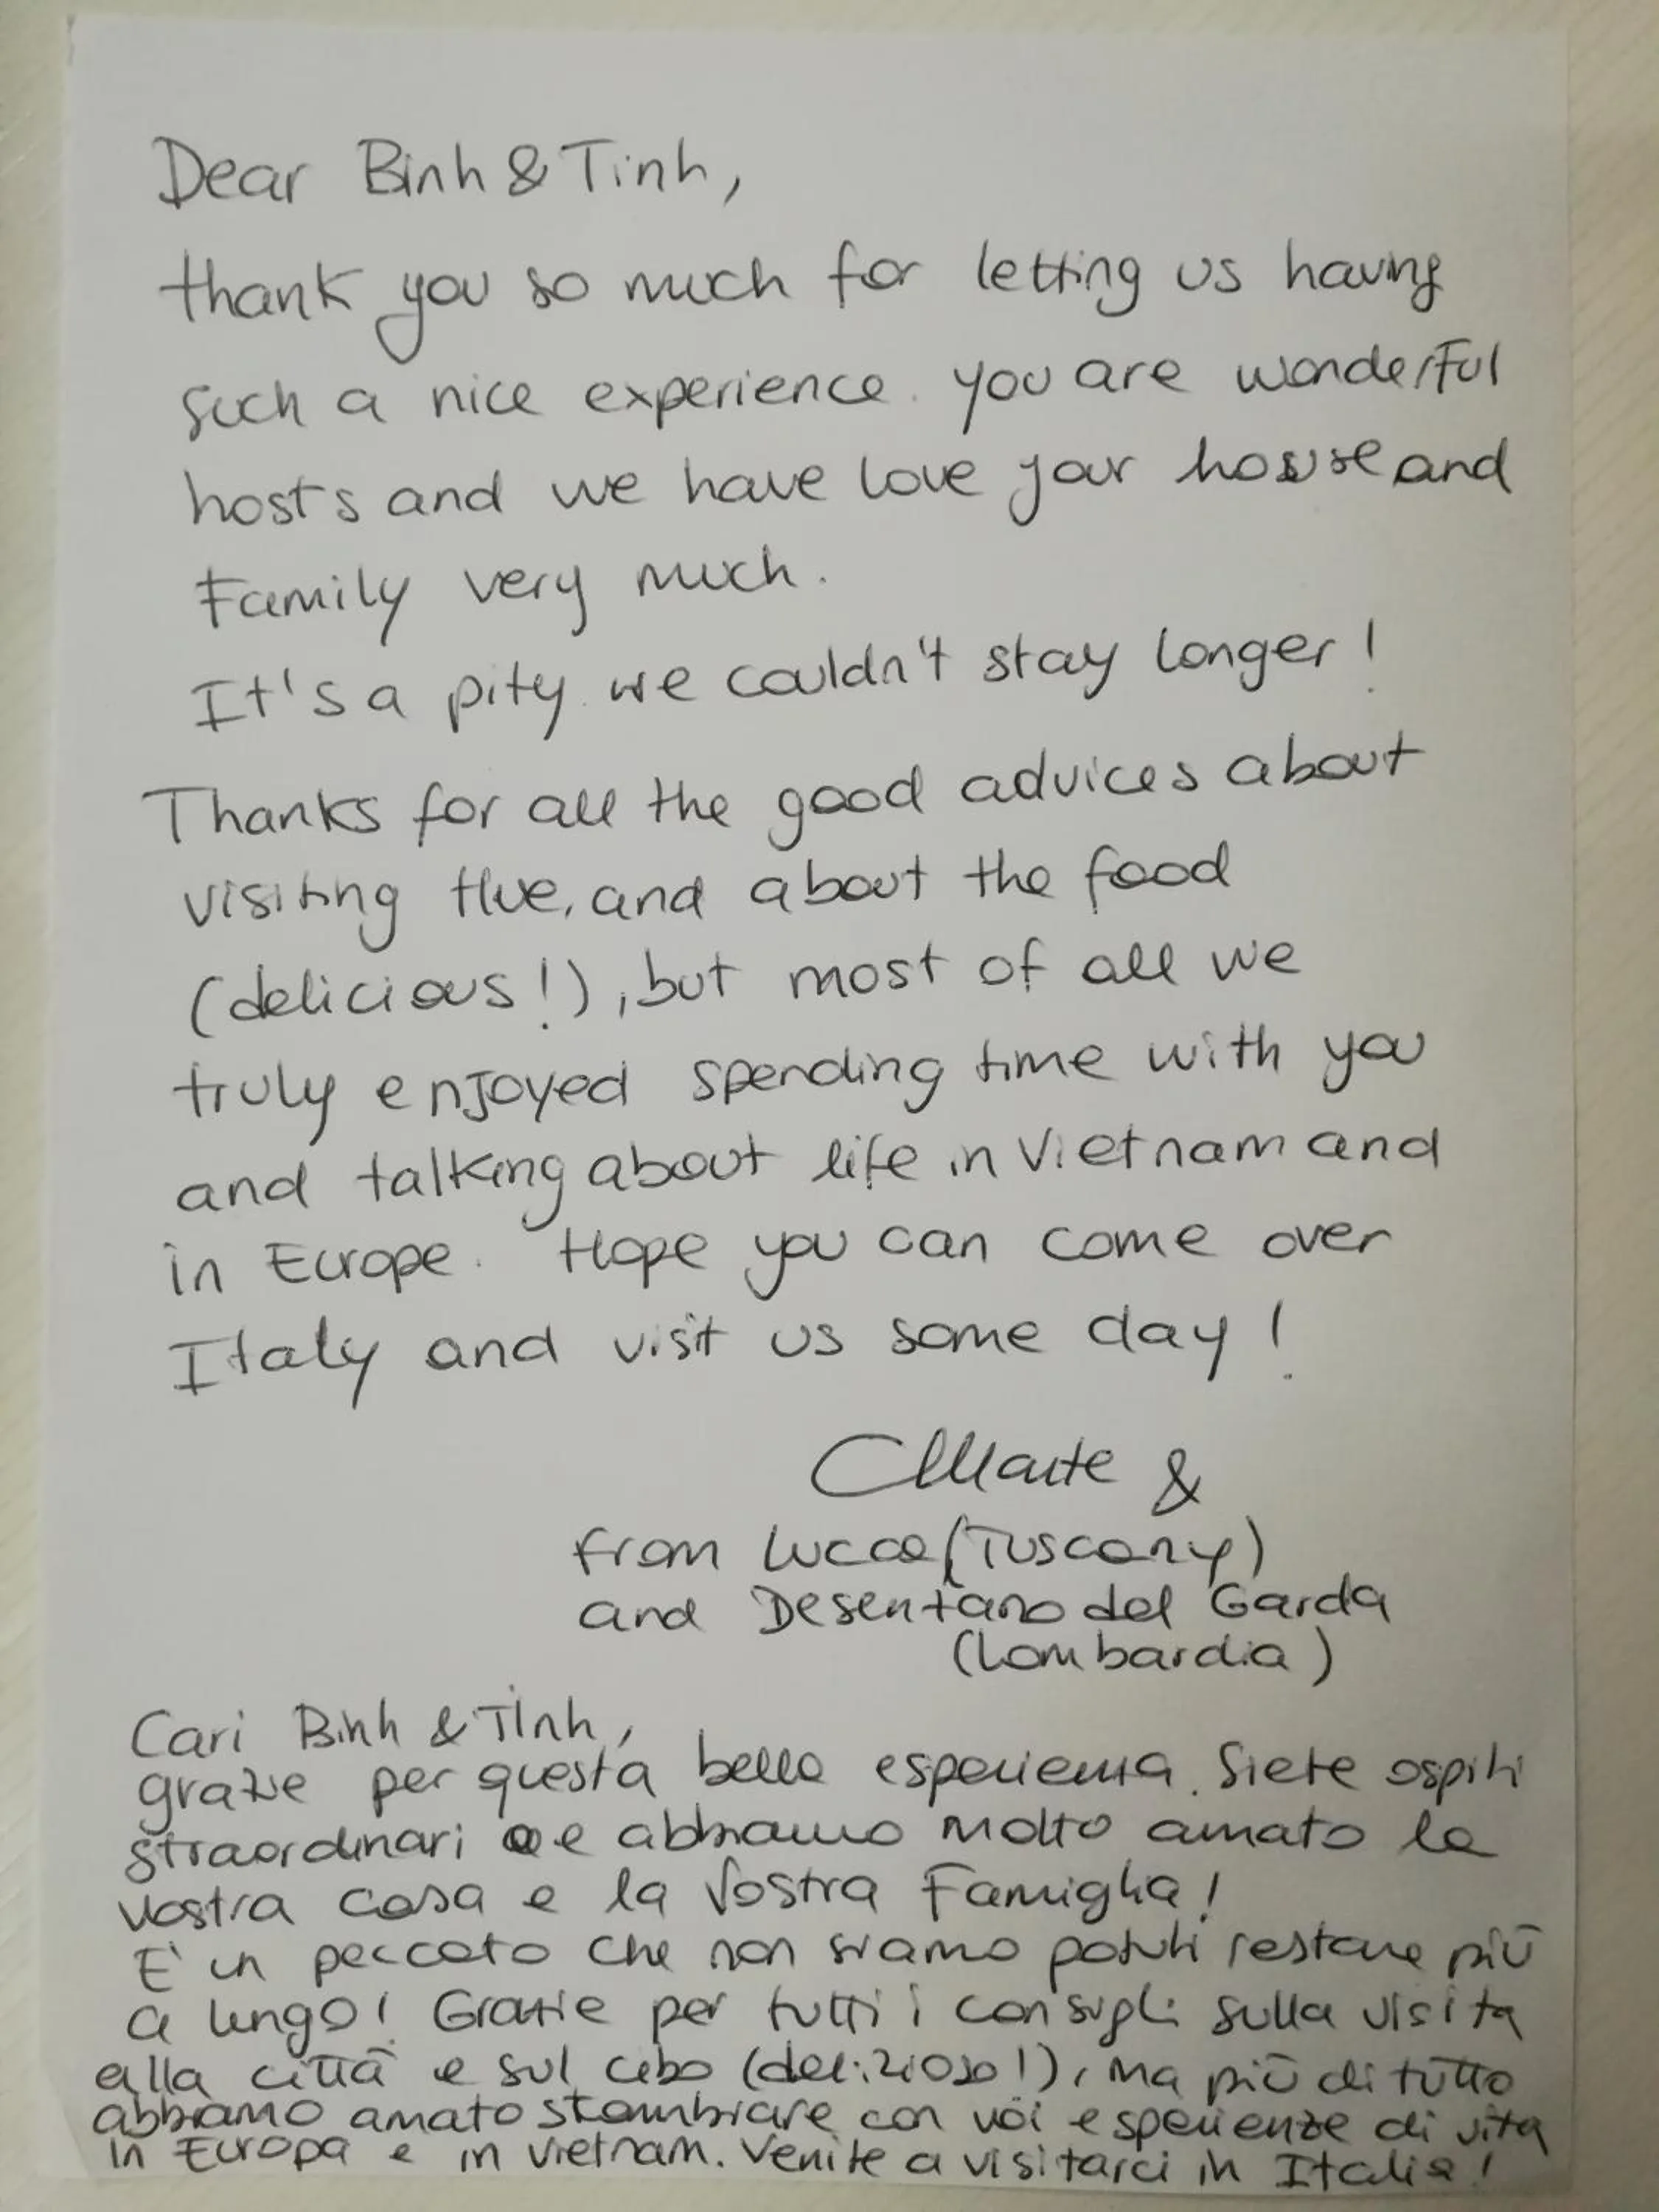 Dear Binh & Tinh,
thank you so much for letting us having
such a nice experience. you are wonderful
hosts and we have love your house and
Family very much.
It's a pity we couldn't stay longer!
Thanks for all the good advices about
visiting Hue, and about the food
(delicious!), but most of all we
truly enjoyed spending time with you
and talking about life in Vietnam and
in Europe. Hope you can come over
Italy and visit us some day!
&
from Lucca (Tuscany)
and Desentano del Garda
(Lombardia)
Cari Binh & Tinh,
grazie per questa bella esperienza. Siete ospiti
straordinari e abbiamo molto amato la
vostra casa e la vostra Famiglia!
E' un peccato che non siamo potuti restare più
a lungo! Grazie per tutti i consigli sulla visita
alla città e sul cibo (delizioso!), ma più di tutto
abbiamo amato scambiare con voi esperienze di vita
in Europa e in Vietnam. Venite a visitarci in Italia!